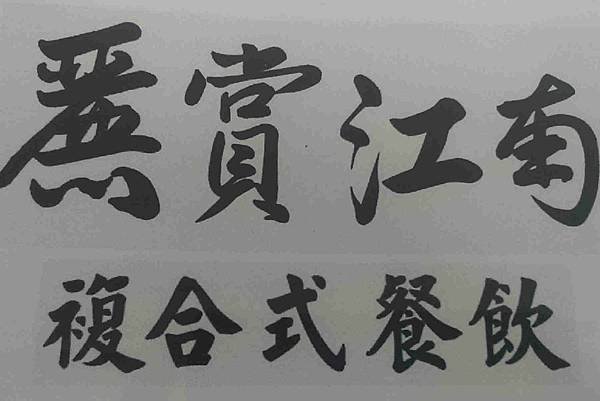 麗賞江南
複合式餐飲